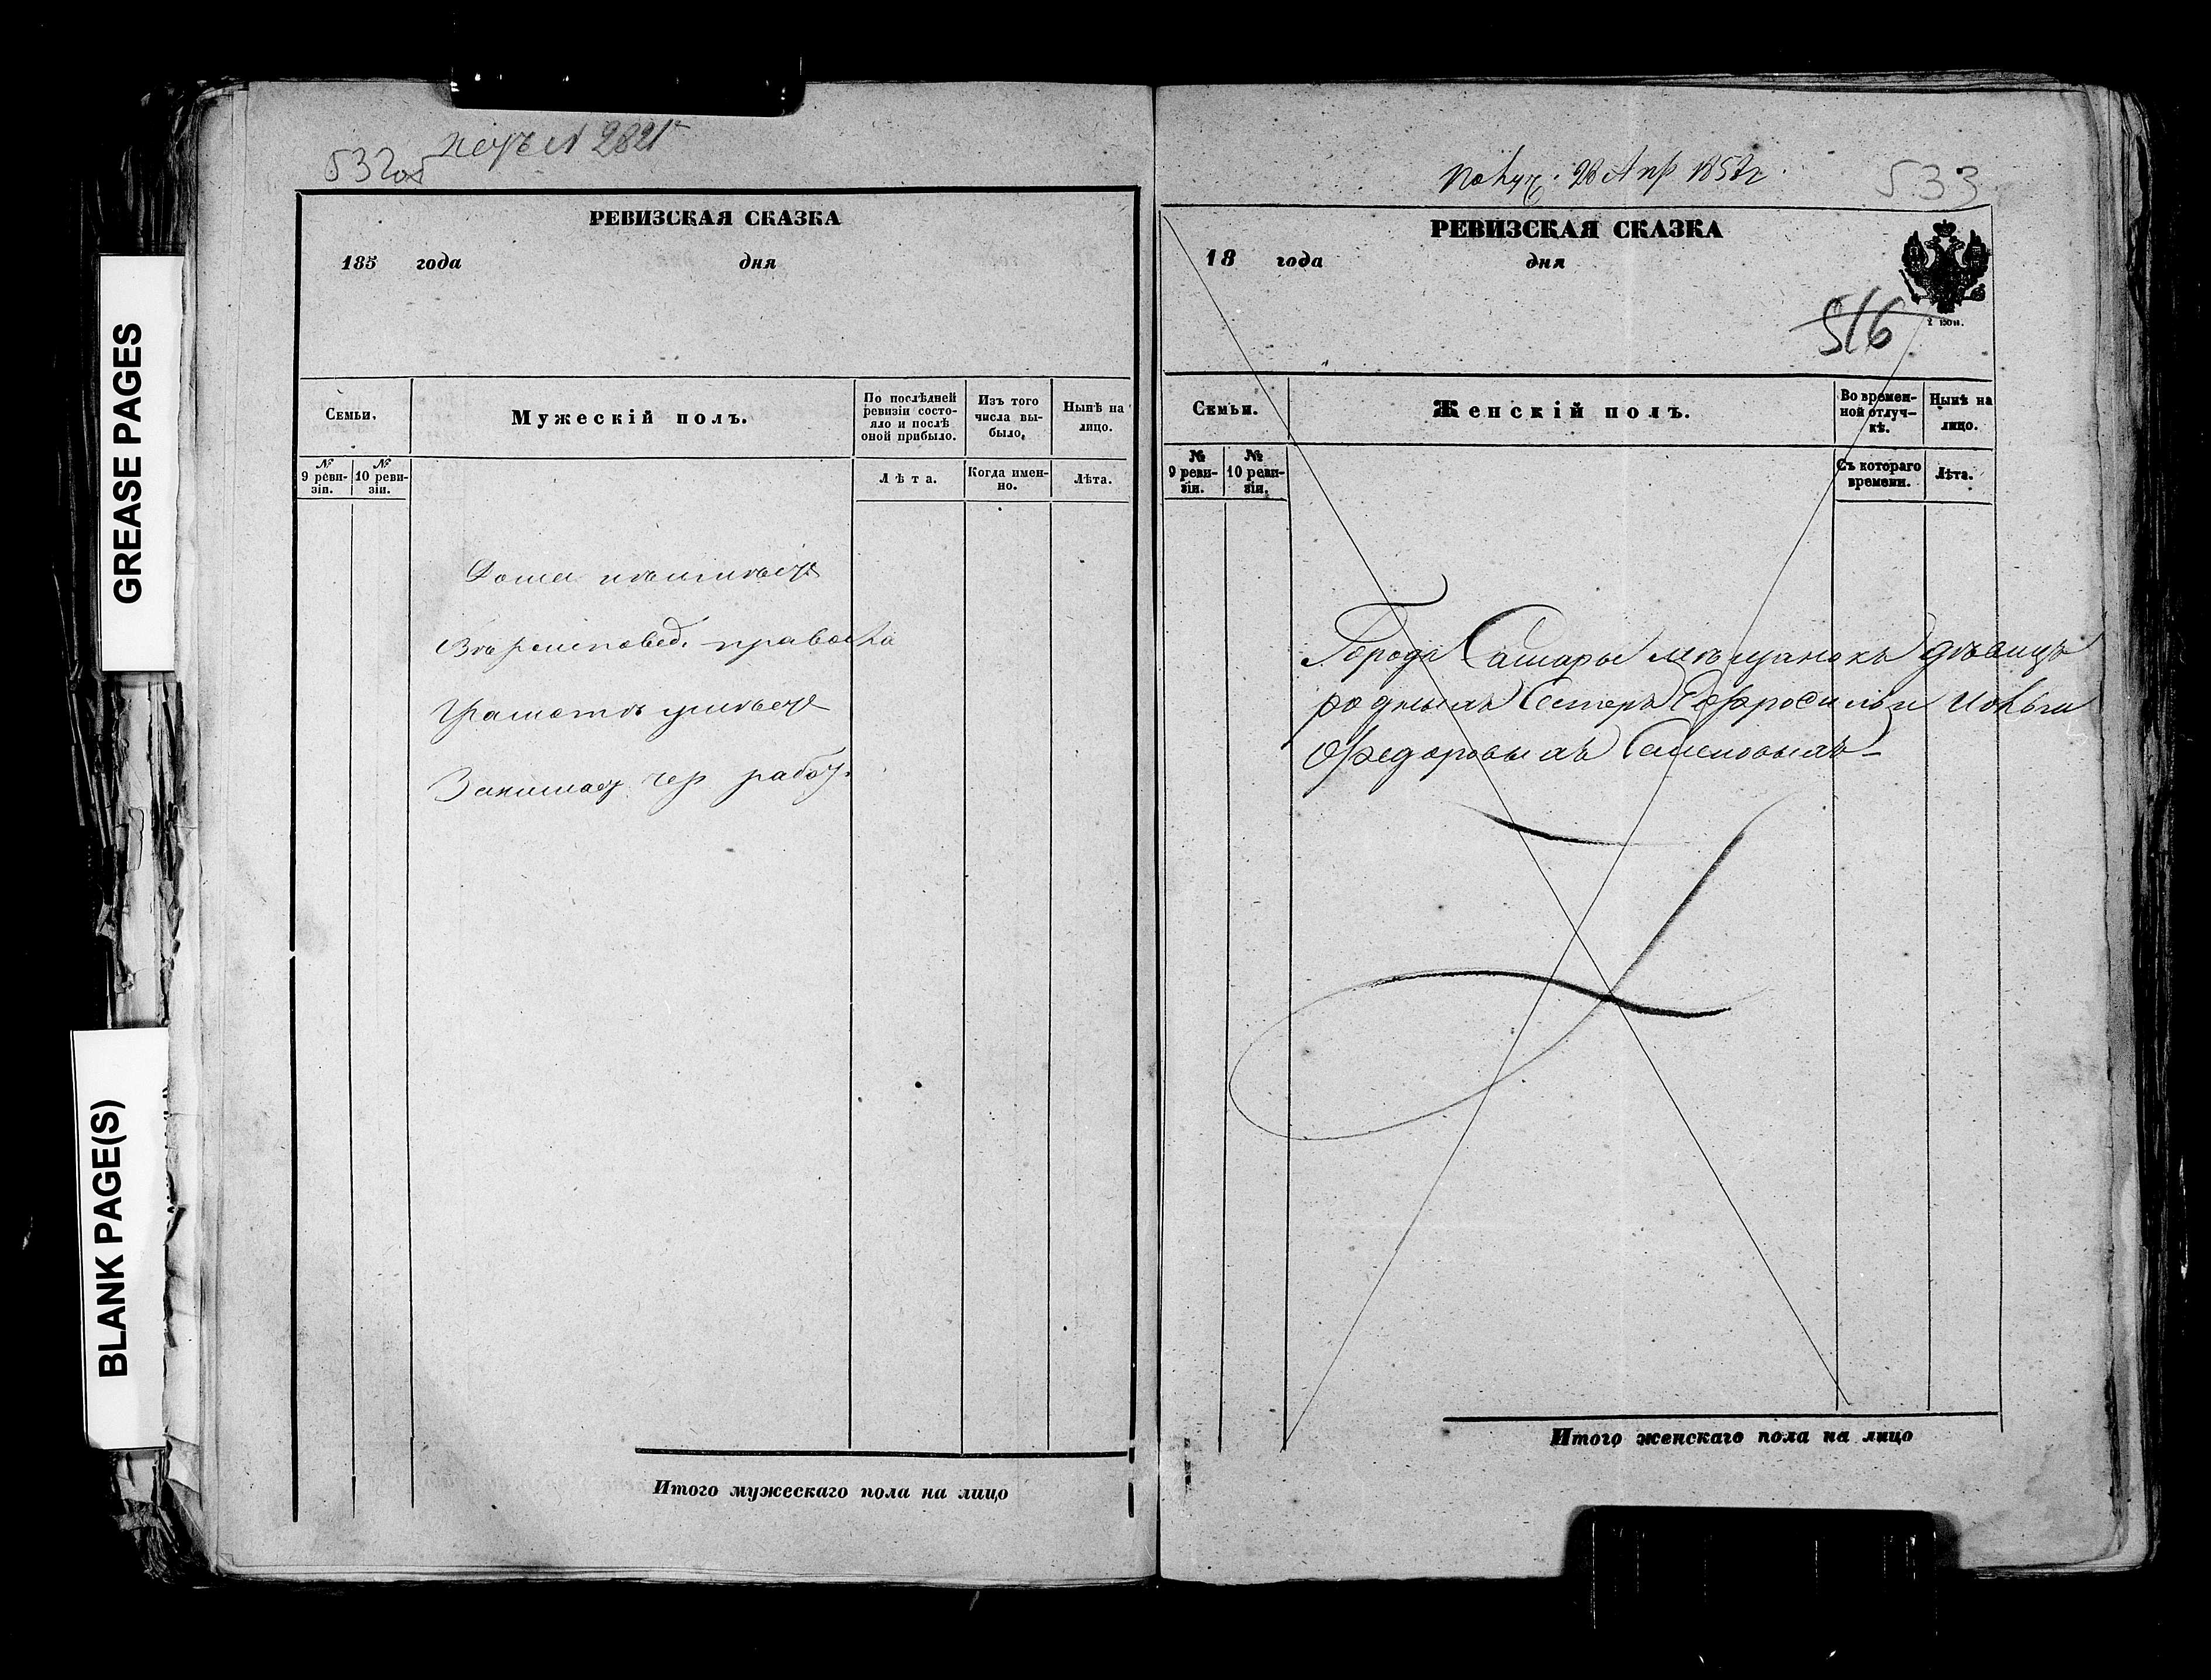 GREASE PAGES
BLANK PAGE(S)
532об
№ 2821
РЕВИЗСКАЯ СКАЗКА
185 года дня
Семьи.
Мужескій полъ.
По послѣдней ревизіи состояло и послѣ оной прибыло.
Изъ того числа выбыло.
Нынѣ на лицо.
№ 9 ревизіи.
№ 10 ревизіи.
Лѣта.
Когда именно.
Лѣта.
Дома неимѣетъ
Вѣроисповед. православ
Грамотѣ умѣетъ
Занимает чер работ.
Итого мужескаго пола на лицо
Получ. 28 Апр 1858г.
533
РЕВИЗСКАЯ СКАЗКА
18 года дня
516
Семьи.
Женскій полъ.
Во временной отлучкѣ.
Нынѣ на лицо.
№ 9 ревизіи.
№ 10 ревизіи.
Съ котораго времени.
Лѣта.
Города Самары мѣщанокъ дѣвицъ
родныхъ Сестеръ Ефросиньи и
Федоровыхъ Семеновыхъ
Итого женскаго пола на лицо